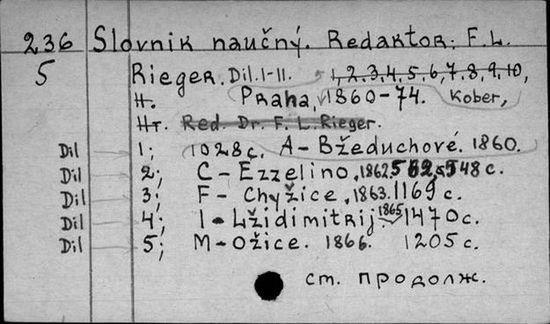 236 Slovnik naučný. Redaktor: F.L.
5 Rieger. Dil. I-II. 1,2,3,4,5,6,7,8,9,10,
Н. Praha, 1860-74. Kober,
Нт. Red. Dr. F. L. Rieger.
Dil 1; 1028с. A-Bžeduchové. 1860.
Dil 2; C-Ezzelino. 1862. 548 с.
Dil 3; F-Chyžice. 1863. 1169 с.
Dil 4; I-Lžidimitrij. 1865 1470с.
Dil 5; M-Ožice. 1866. 1205 с.
ст. продолж.